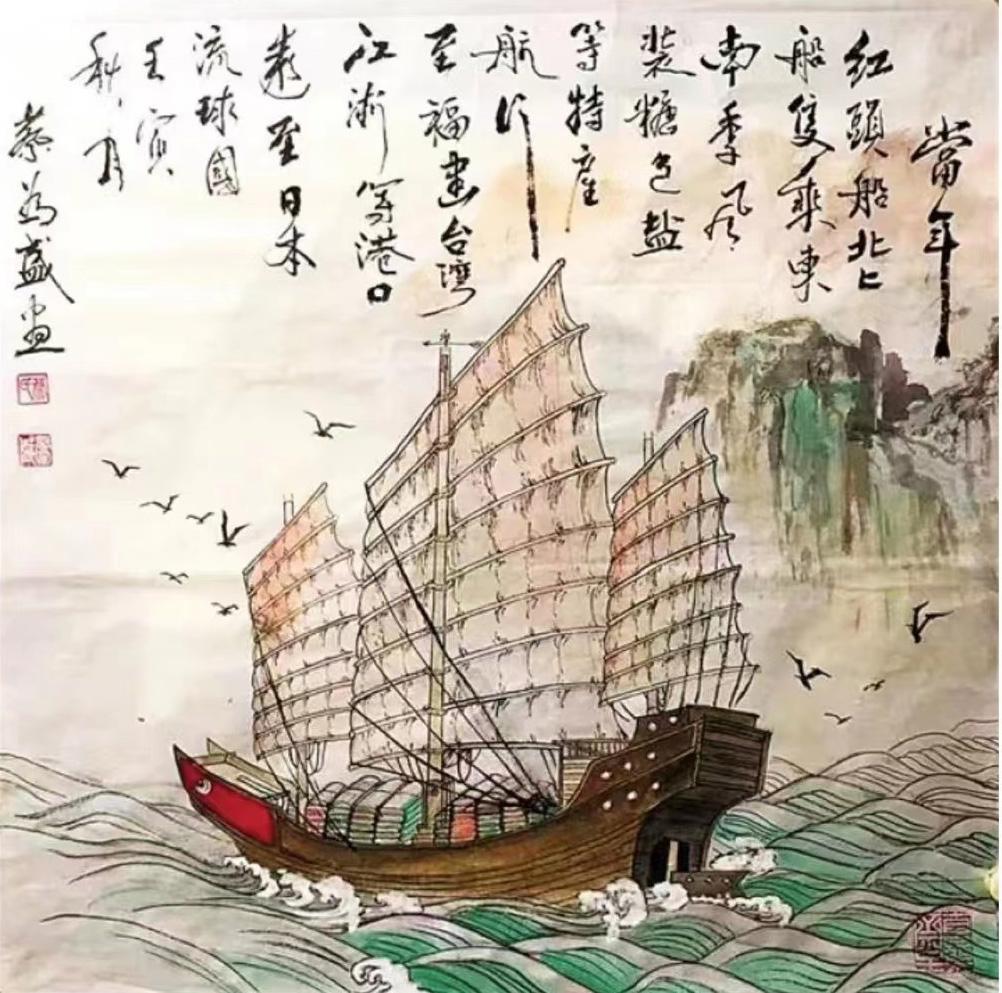 當年
紅頭船北上
船隻乘東
南季風
裝糖包盐
等特産
航行
至福建台灣
江浙等港口
遠至日本
流球國
壬寅
秋月
蔡為盛画